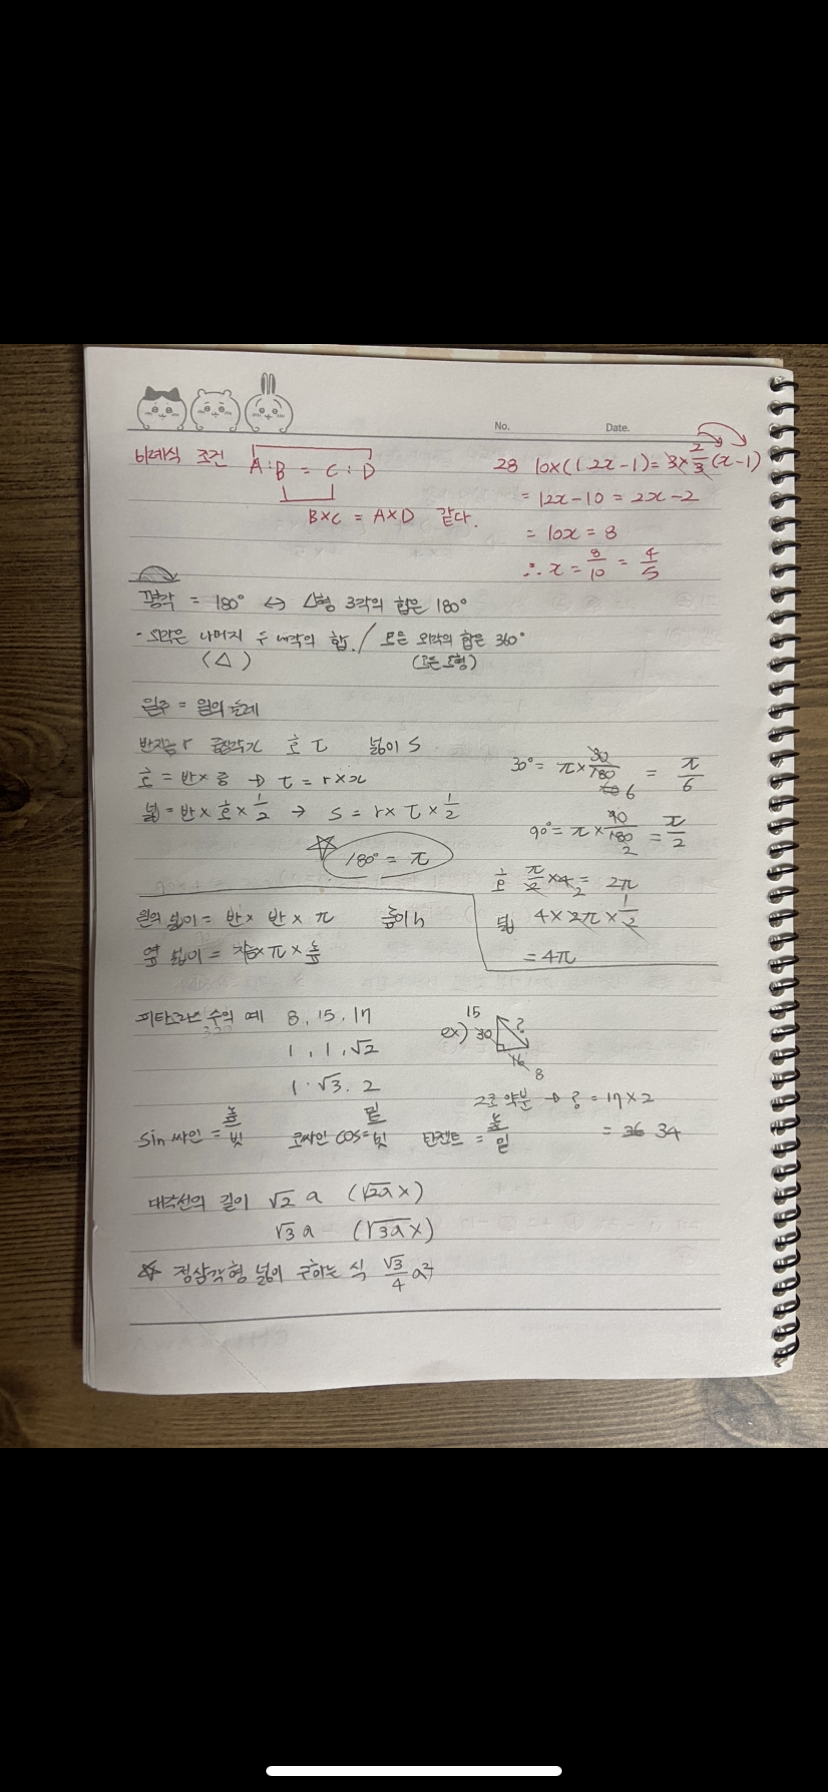 No. Date.
비례식 조건 A:B = C:D
B×C = A×D 같다.
28 10×(1.2x-1)=3×2/3(x-1)
= 12x-10 = 2x-2
= 10x = 8
∴ x = 8/10 = 4/5
평각 = 180° ↔ △형 3각의 합은 180°
· 외각은 나머지 두 내각의 합. / 모든 외각의 합은 360°
(△) (모든 도형)
원주 = 원의 둘레
반지름 r 중심각 x 호 τ 넓이 S
호 = 반 × 중 → τ = r×x
넓 = 반 × 호 × 1/2 → S = r × τ × 1/2
180° = π
30° = π × 30/180 6 = π/6
90° = π × 90/180 2 = π/2
호 π/2 × 4 2 = 2π
넓 4 × 2π × 1/2
= 4π
원의 넓이 = 반 × 반 × π 높이 h
옆 넓이 = 지름 × π × 높
피타고라스 수의 예 8, 15, 17
1, 1, √2
1. √3. 2
ex) 15
30 ?
16
8
2로 약분 → ? = 17 × 2
= 36 34
sin 싸인 = 높/빗 코싸인 cos = 밑/빗 탄젠트 = 높/밑
대각선의 길이 √2 a (√2a x)
√3 a (√3a x)
☆ 정삼각형 넓이 구하는 식 √3/4 a²